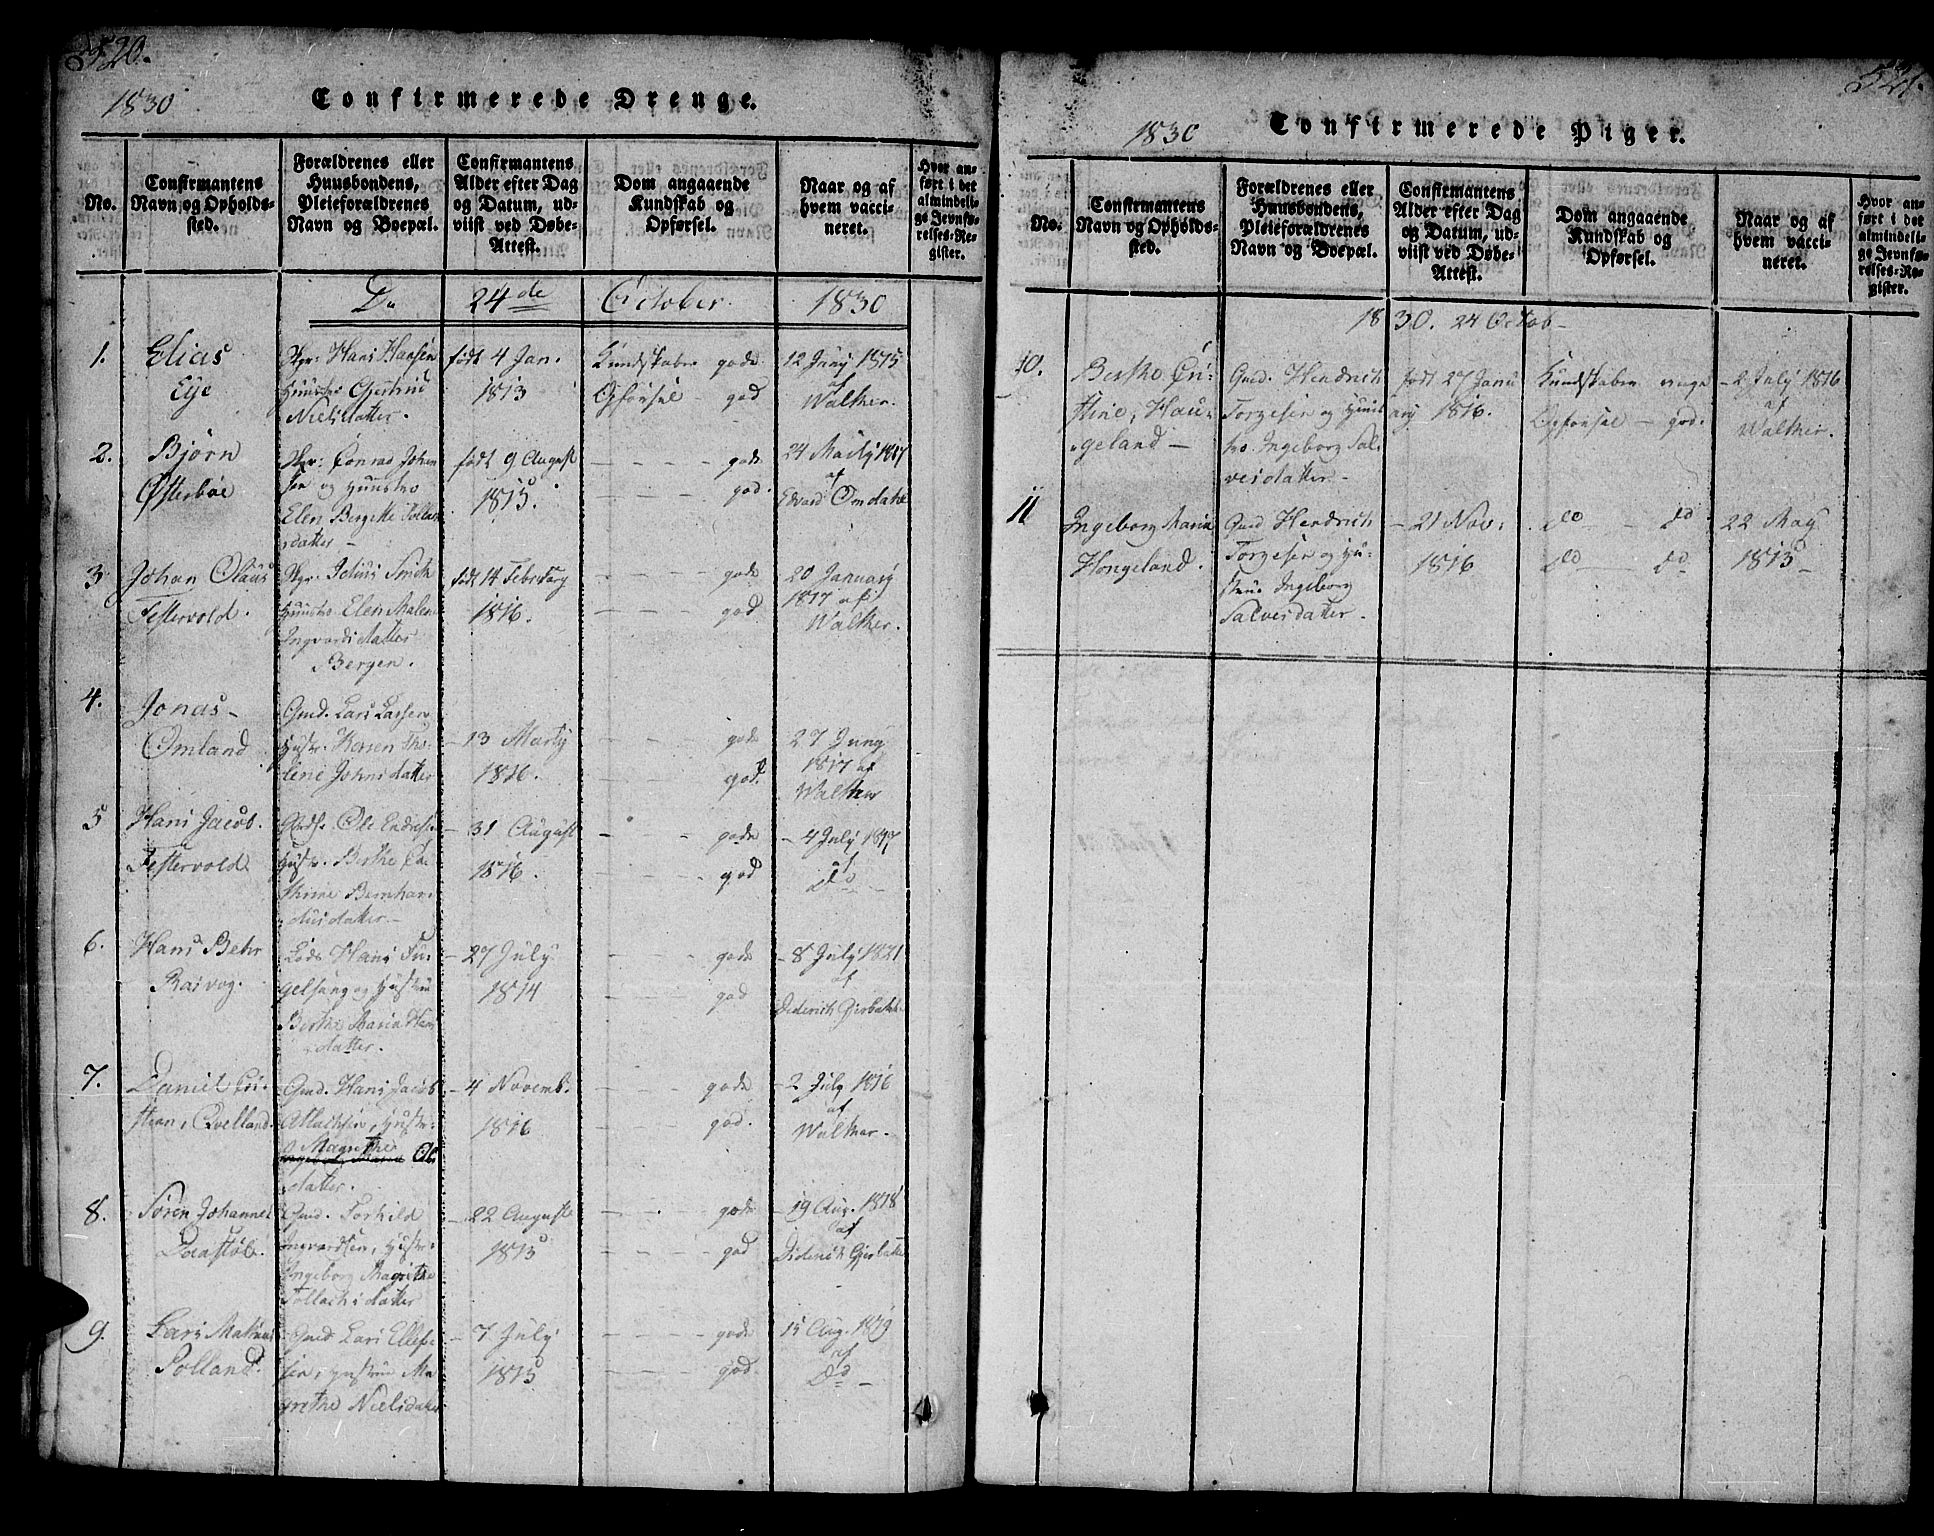 520.
1830
Confirmerede Drenge.
No.
Confirmantens
Navn og Opholds-
sted.
Forældrenes eller
Huusbondens,
Pleieforældrenes
Navn og Boepæl.
Confirmantens
Alder efter Dag
og Datum, ud-
viist ved Døbe-
Attest.
Dom angaaende
Kundskab og
Opførsel.
Naar og af
hvem vacci-
neret.
Hvor an-
ført i det
almindeli-
ge Jevnfø-
relses-Re-
gister.
24de October 1830
1.
Elias
Eje
Hans Hansen
Gjertrud
Nielsdatter.
født 4 Jan.
1813
Kundskaber gode
Opførsel god
12 Juny 1815
af
Walther.
2.
Bjørn
Østerbøe
Conrad Johan
sen og Huustro
Elen Bergitte
datter –
født 9 August
1815.
– – – – gode
– – – god.
24
af
Edvard Omdahl
3
Johan Olaus
Festervold.
Smith
Huustro Elen Malene
Ingvarsdatter
Bergen.
født 14 February
1816.
– – – – gode
– – – god
20 January
1817 af
Walther.
4.
Jonas
Omland
Gmd. Lars Larsen
Hustr. Karen
Johnsdatter
– 13 Marty
1816.
– – – gode
– – – god.
27 Juny
1817 af
Walther
5
Hans Jacob.
Festervold
Ole
Hustr. Berthe
datter –
– 31 August
1816.
– – gode
– – – god
– 4 July 1817
af
Do
6.
Hans Behr
Rasvog.
Lods Hans Fu-
gelsang og Hustru
Berthe Maria
datter.
– 27 July
1814
– – – gode
– – – god
– 8 July 1821
af
Diderich
7.
Daniel Cri-
stian, Qvelland.
Gmd. Hans Jacob
Atlachsen, Hustr:
Magrethe
datter.
– 4 Novemb.
1816
– – – gode
– – – god.
– 2 July 1816
af
Walther –
8.
Søren Johannes
Gmd. Torkild
Ingvardsen, Hustr:
Ingeborg Magrethe
Tollachsdatter
– 22 Auguste
1815
– – gode
– – – god
– 19 Aug. 1818
af
Diderich
9.
Lars
Polland.
Gmd Lars Ellef-
sen, Hustru Ma
grethe Nielsdatter
– 7 July
1815
– – – gode
– – – god.
15 Aug. 1819
af
Do –
521.
1830
Confirmerede Piger.
No.
Confirmantens
Navn og Opholds-
sted.
Forældrenes eller
Huusbondens,
Pleieforældrenes
Navn og Boepæl.
Confirmantens
Alder efter Dag
og Datum, ud-
viist ved Døbe-
Attest.
Dom angaaende
Kundskab og
Opførsel.
Naar og af
hvem vacci-
neret.
Hvor an-
ført i det
almindeli-
ge Jevnfø-
relses-Re-
gister.
1830. 24 Octob –
10.
Berthe Cri-
stine, Hau-
geland –
Gmd. Hendrich
Torgesen og Huus
tro. Ingeborg Sal-
vesdatter –
født 27 Janu
ary 1816.
Kundskaber
Opførsel – god.
– 2 July 1816
af
Walther.
11
Ingeborg Maria
Hongeland.
Gmd Hendrich
Torgesen og Hu-
strue Ingeborg
Salvesdatter.
– 21 Nov:
1816
do – do
do – do
22 May
1815 –